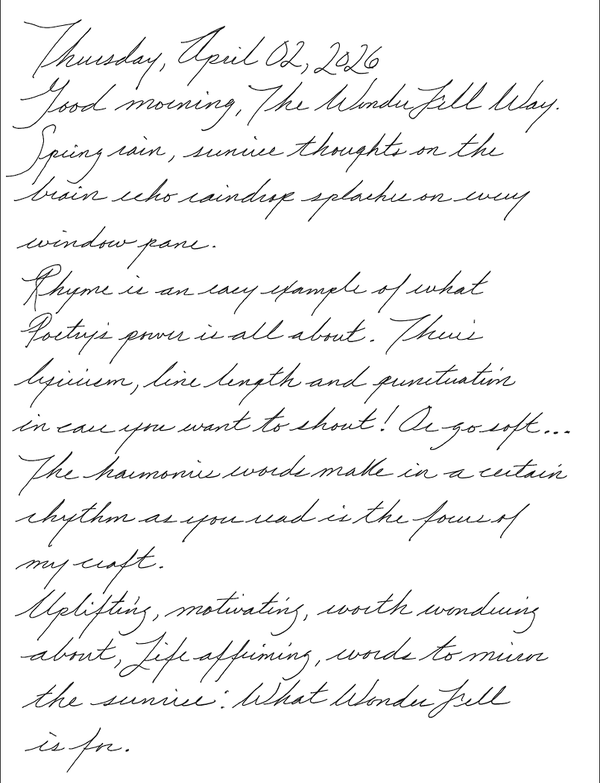 Thursday, April 02, 2026
Good morning, The WonderFell Way.
Spring rain, sunrise thoughts on the
brain echo raindrop splashes on every
window pane.
Rhyme is an easy example of what
Poetry's power is all about. There's
lyricism, line length and punctuation
in case you want to shout! Or go soft...
The harmonies words make in a certain
rhythm as you read is the focus of
my craft.
Uplifting, motivating, worth wondering
about, Life affirming, words to mirror
the sunrise: What WonderFell
is for.